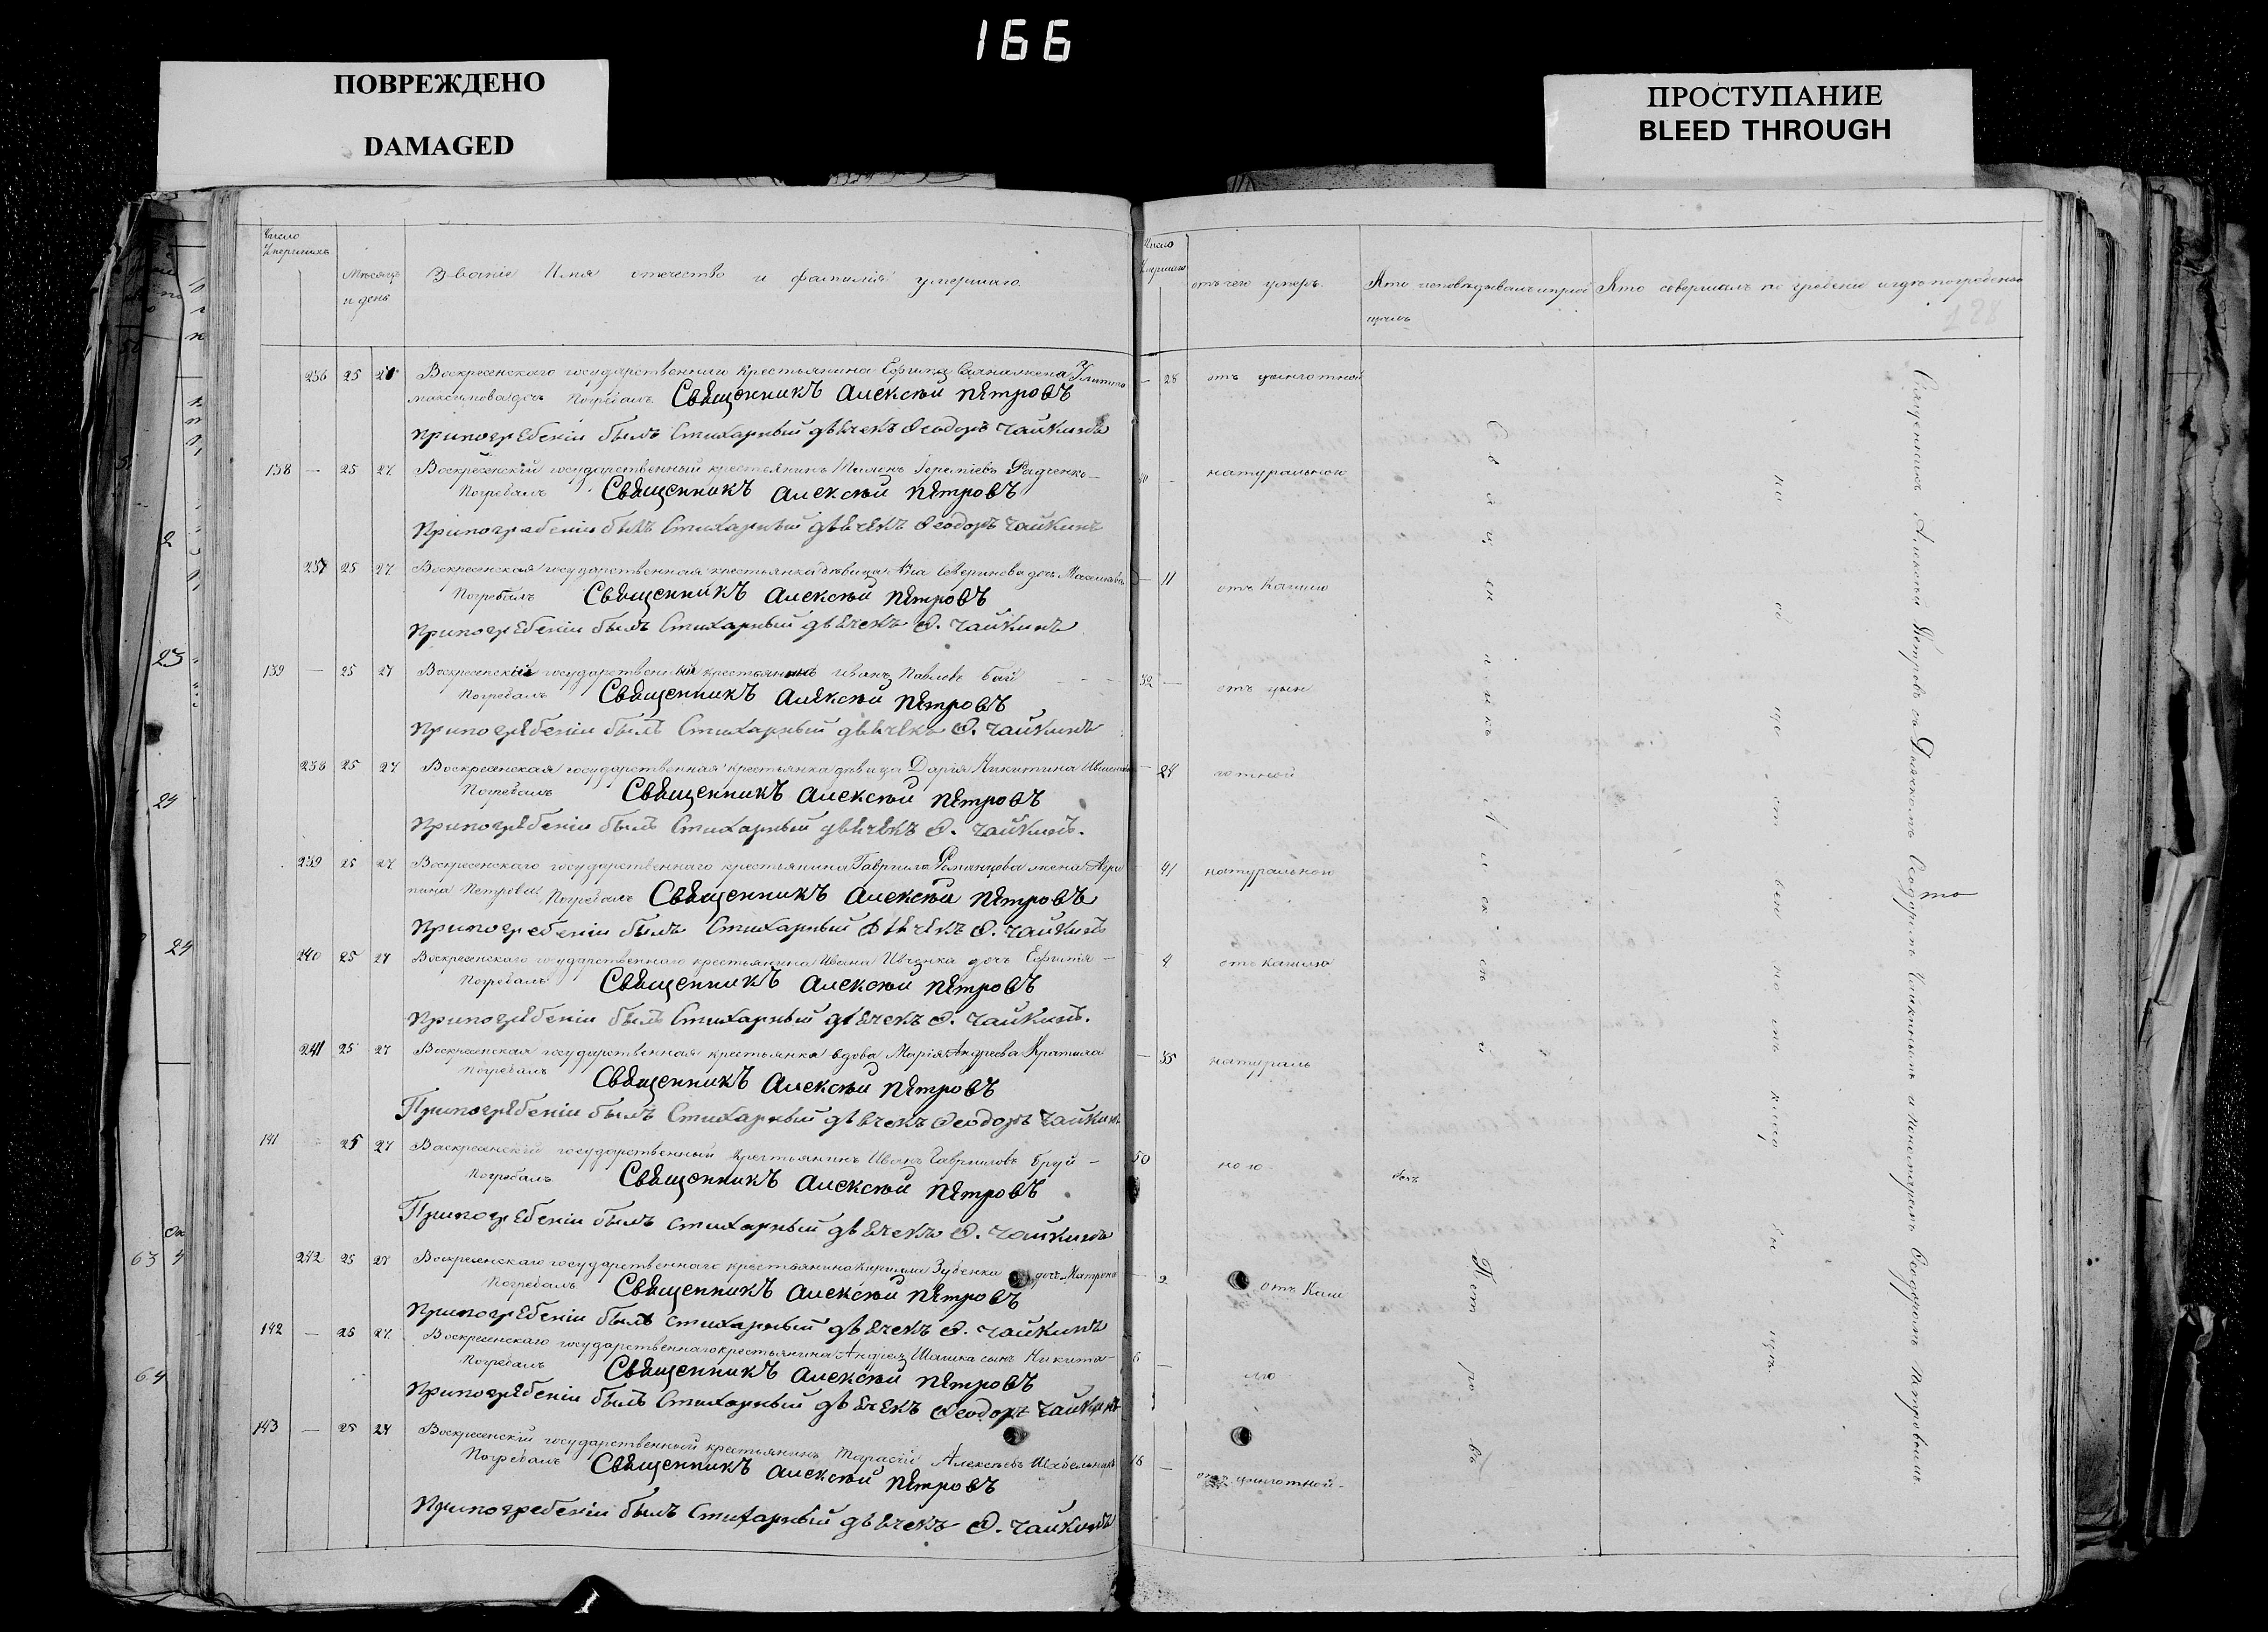 166
ПОВРЕЖДЕНО
DAMAGED
ПРОСТУПАНИЕ
BLEED THROUGH
Число умершихъ
Мѣсяцъ и день
Званіе Имя отечество и фамилія умершаго.
Число умершихъ
отъ чего умеръ.
Кто исповѣдывалъ и пріобщалъ
Кто совершалъ погребеніе и гдѣ погребенъ
128
236 25 28 Воскресенскаго государственнаго крестьянина жена
Максимова дочь Погребалъ Священникъ Алексѣй Петровъ
При погребеніи былъ Стихарный дьячекъ Ѳеодоръ Чайкинъ
— 28 отъ цынготной
138 — 25 27 Воскресенскій государственный крестьянинъ Радченко —
Погребалъ Священникъ Алексѣй Петровъ
При погребеніи былъ Стихарный дьячекъ Ѳеодоръ Чайкинъ
натуральною
237 25 27 Воскресенская государственная крестьянка дѣвица Северинова дочь
Погребалъ Священникъ Алексѣй Петровъ
При погребеніи былъ Стихарный дьячекъ Ѳ. Чайкинъ
— 11 отъ кашлю
139 — 25 27 Воскресенскій государственный крестьянинъ Иванъ Павловъ Бай
Погребалъ Священникъ Алексѣй Петровъ
При погребеніи былъ Стихарный дьячекъ Ѳ. Чайкинъ
32 — отъ цын
238 25 27 Воскресенская государственная крестьянка дѣвица Дарія Никитина
Погребалъ Священникъ Алексѣй Петровъ
При погребеніи былъ Стихарный дьячекъ Ѳ. Чайкинъ.
— 24 готной
239 25 27 Воскресенскаго государственнаго крестьянина Гавриила Романцова жена Агри
пина Петрова Погребалъ Священникъ Алексѣй Петровъ
При погребеніи былъ Стихарный дьячекъ Ѳ. Чайкинъ
— 41 натуральною
240 25 27 Воскресенскаго государственнаго крестьянина Ивана дочь Евфимія —
Погребалъ Священникъ Алексѣй Петровъ
При погребеніи былъ Стихарный дьячекъ Ѳ. Чайкинъ.
— 4 отъ кашлю
241 25 27 Воскресенская государственная крестьянка вдова Марія Андреева
Погребалъ Священникъ Алексѣй Петровъ
При погребеніи былъ Стихарный дьячекъ Ѳеодоръ Чайкинъ
— 35 натураль
141 25 27 Воскресенскій государственный крестьянинъ Иванъ Гавриловъ —
Погребалъ Священникъ Алексѣй Петровъ
При погребеніи былъ стихарный дьячекъ Ѳ. Чайкинъ
50 ною
242 25 27 Воскресенскаго государственнаго крестьянина Кирилла Зубенка дочь Матрона
Погребалъ Священникъ Алексѣй Петровъ
При погребеніи былъ стихарный дьячекъ Ѳ. Чайкинъ
— 2 отъ каш
142 — 25 27 Воскресенскаго государственнаго крестьянина Андрея сынъ Никита —
Погребалъ Священникъ Алексѣй Петровъ
При погребеніи былъ Стихарный дьячекъ Ѳеодоръ Чайкинъ
6 — лю
143 — 25 27 Воскресенскій государственный крестьянинъ Тарасій Алексѣевъ
Погребалъ Священникъ Алексѣй Петровъ
При погребеніи былъ Стихарный дьячекъ Ѳ. Чайкинъ
16 — отъ цынготной.
Священникъ Алексѣй Петровъ
Священникъ Алексѣй Петровъ съ Дьячкомъ Ѳеодоромъ Чайкинымъ и пономаремъ Ѳеодоромъ Петровымъ